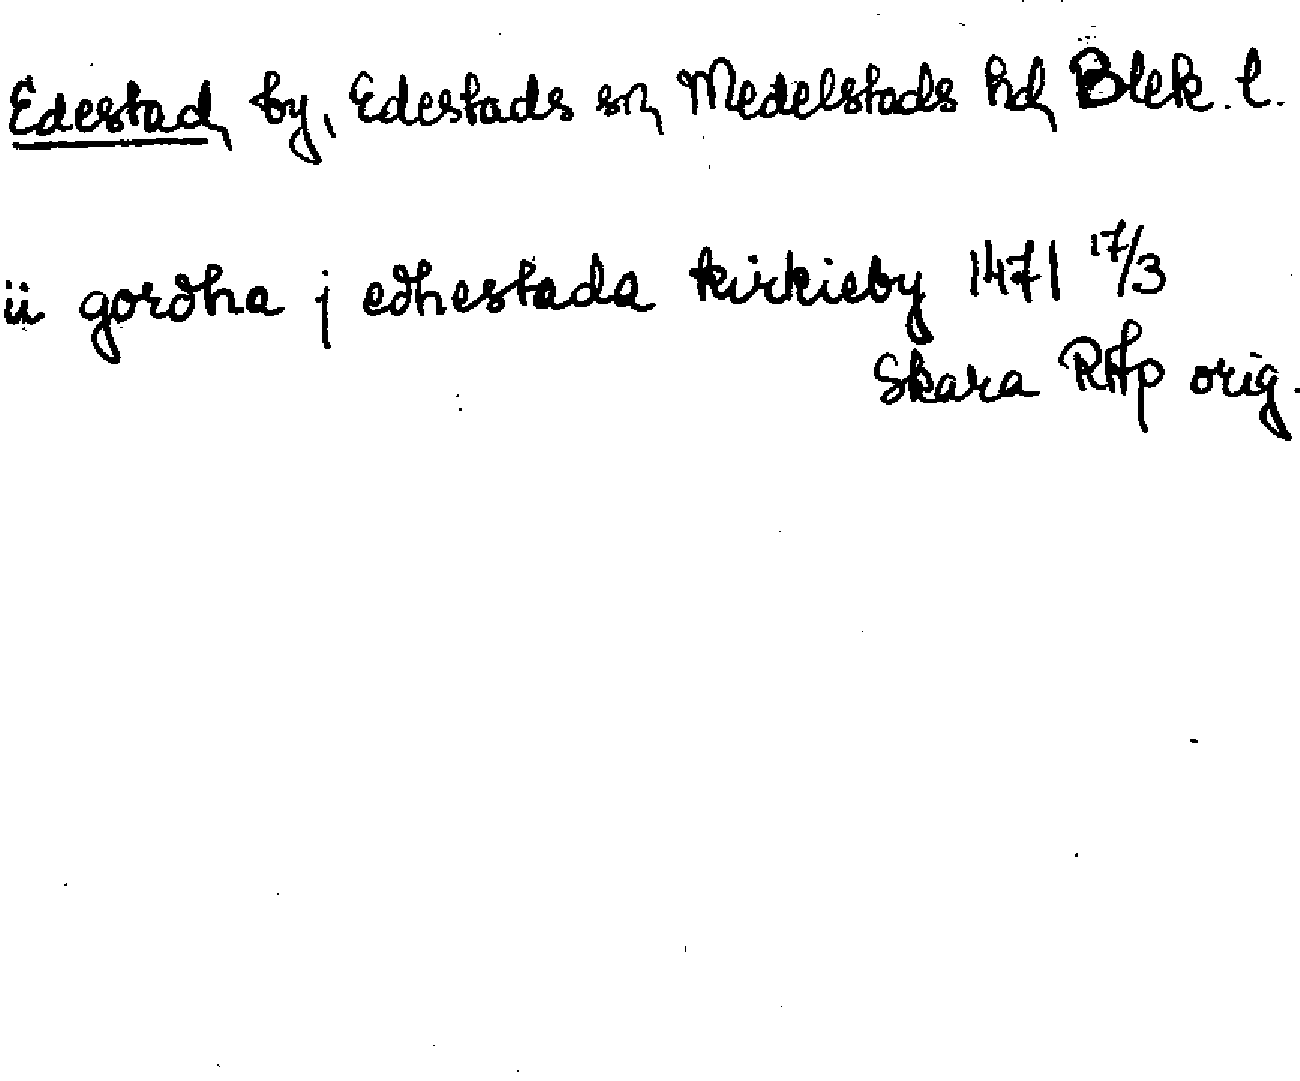 Edestad, by, Edestads sn, Medelstads hd, Blek. l.
ii gordha j edhestada kirkieby 1471 17/3
Skara RAp orig.